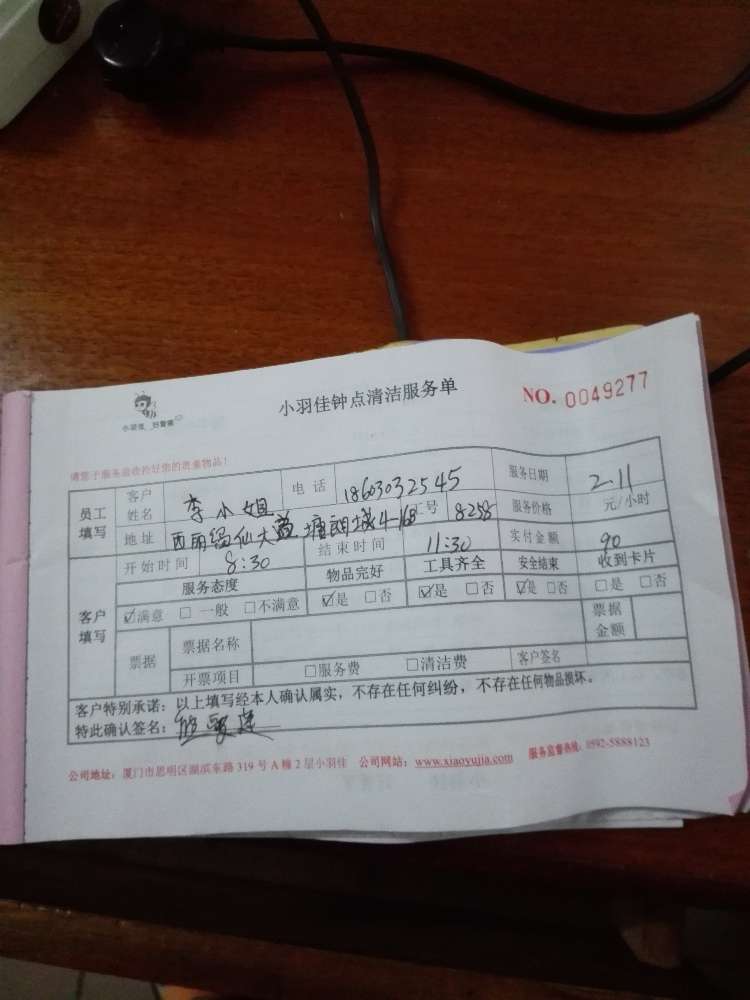 小羽佳钟点清洁服务单
NO. 0049277
小羽佳 好管家
请您于服务前收拾好您的贵重物品!
员工填写 客户姓名 李小姐 电话 18603032545 服务日期 2.11
地址 西丽 仙大 塘朗城4-16 工号 8258 服务价格 元/小时
客户填写 开始时间 8:30 结束时间 11:30 实付金额 90
服务态度 物品完好 工具齐全 安全结束 收到卡片
☑满意 □一般 □不满意 ☑是 □否 ☑是 □否 ☑是 □否 □是 □否
票据 票据名称 票据金额
开票项目 □服务费 □清洁费 客户签名
客户特别承诺:以上填写经本人确认属实,不存在任何纠纷,不存在任何物品损坏。
特此确认签名:
公司地址:厦门市思明区湖滨东路 319 号 A 幢 2 层小羽佳 公司网站:www.xiaoyujia.com 服务监督热线:0592-5888123